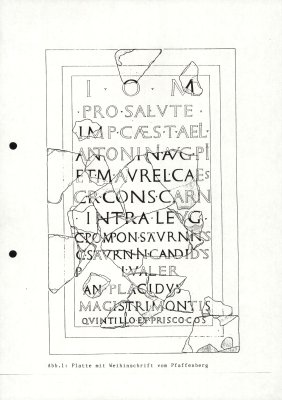 I · O · M
PRO · SALVTE ·
IMP · CÆS · T · AEL ·
ANTONINI AVG · PI
ET M · AVREL · CAES
C R · CONS · CARN
INTRA · LEVG ·
C POMPON · SATVRNINVS
AN PLACIDVS
MAGISTRI MONTIS
QVINTILLO ET PRISCO COS
Abb.1: Platte mit Weihinschrift vom Pfaffenberg